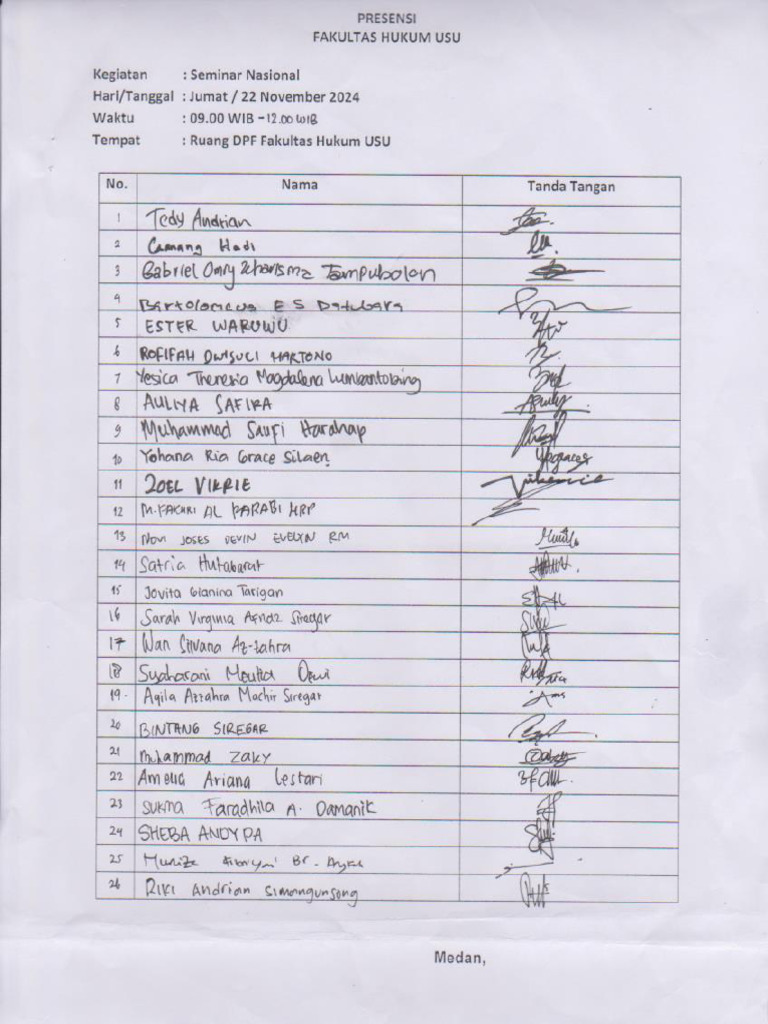 PRESENSI
FAKULTAS HUKUM USU
Kegiatan : Seminar Nasional
Hari/Tanggal : Jumat / 22 November 2024
Waktu : 09.00 WIB – 12.00 WIB
Tempat : Ruang DPF Fakultas Hukum USU
No. Nama Tanda Tangan
1 Tedy Andrian
2 Camang Hadi
3 Gabriel Omry Kharisma Tampubolon
4 Bartolomeus E S Batubara
5 ESTER WARUWU
6 ROFIFAH DWISUCI HARTONO
7 Yesica Theresia Magdalena Lumbantobing
8 AULIYA SAFIRA
9 Muhammad Saufi Harahap
10 Yohana Ria Grace Silaen
11 ZOEL VIKRIE
12 M. FAKHRI AL FARABI HRP
13 NOVI JOSES DEVIN EVELYN RM
14 Satria Hutabarat
15 Jovita Gianina Tarigan
16 Sarah Virginia Siregar
17 Wan Silvana Az-zahra
18 Syaharani Moulia Dewi
19. Aqila Azzahra Machir Siregar
20 BINTANG SIREGAR
21 Muhammad Zaky
22 Amelia Ariana Lestari
23 Sukma Faradhila A. Damanik
24 SHEBA ANDYPA
25 Br.
26 RIKI Andrian Simangunsong
Medan,